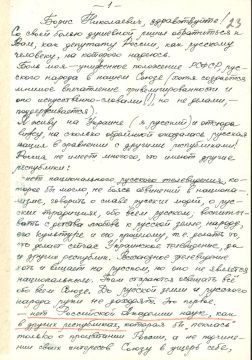 - 1 -
23
Борис Николаевич, здравствуйте!
Со своей болью душевной решил обратиться к
Вам, как депутату России, как русскому
человеку, на которого надеюсь.
Боль моя – униженное положение РСФСР, рус-
ского народа в нашем Союзе (хотя создаётся
мнимое впечатление привилегированности и
оно искусственно – словами(!), но не делами, –
поддерживается).
Я живу на Украине (я русский) и отсюда
вижу, на сколько обделённой оказалась русская
нация в сравнении с другими республиками!
Россия не имеет многого, что имеют другие
республики:
– нет национального русского телевидения, ко-
торое бы могло, не боясь обвинений в национа-
лизме, говорить о славе русских людей, о рус-
ских традициях, обо всём русском, воспиты-
вать с детства любовь к русскому языку, народу,
его культуре и по правому, т.е. делать то,
что делает сейчас Украинское телевидение, да
и других республик. Всесоюзное телевидение
хоть и вещает на русском, но оно не является
национальным. Там стараются вещать всё
обо всём Союзе. До русской земли и русского
народа руки не доходят. Это первое.
– нет Российской Академии наук, как
в других республиках, которая бы пеклась
только о процветании России, а не подчи-
ни своих интересов Союзу в ущерб себе,